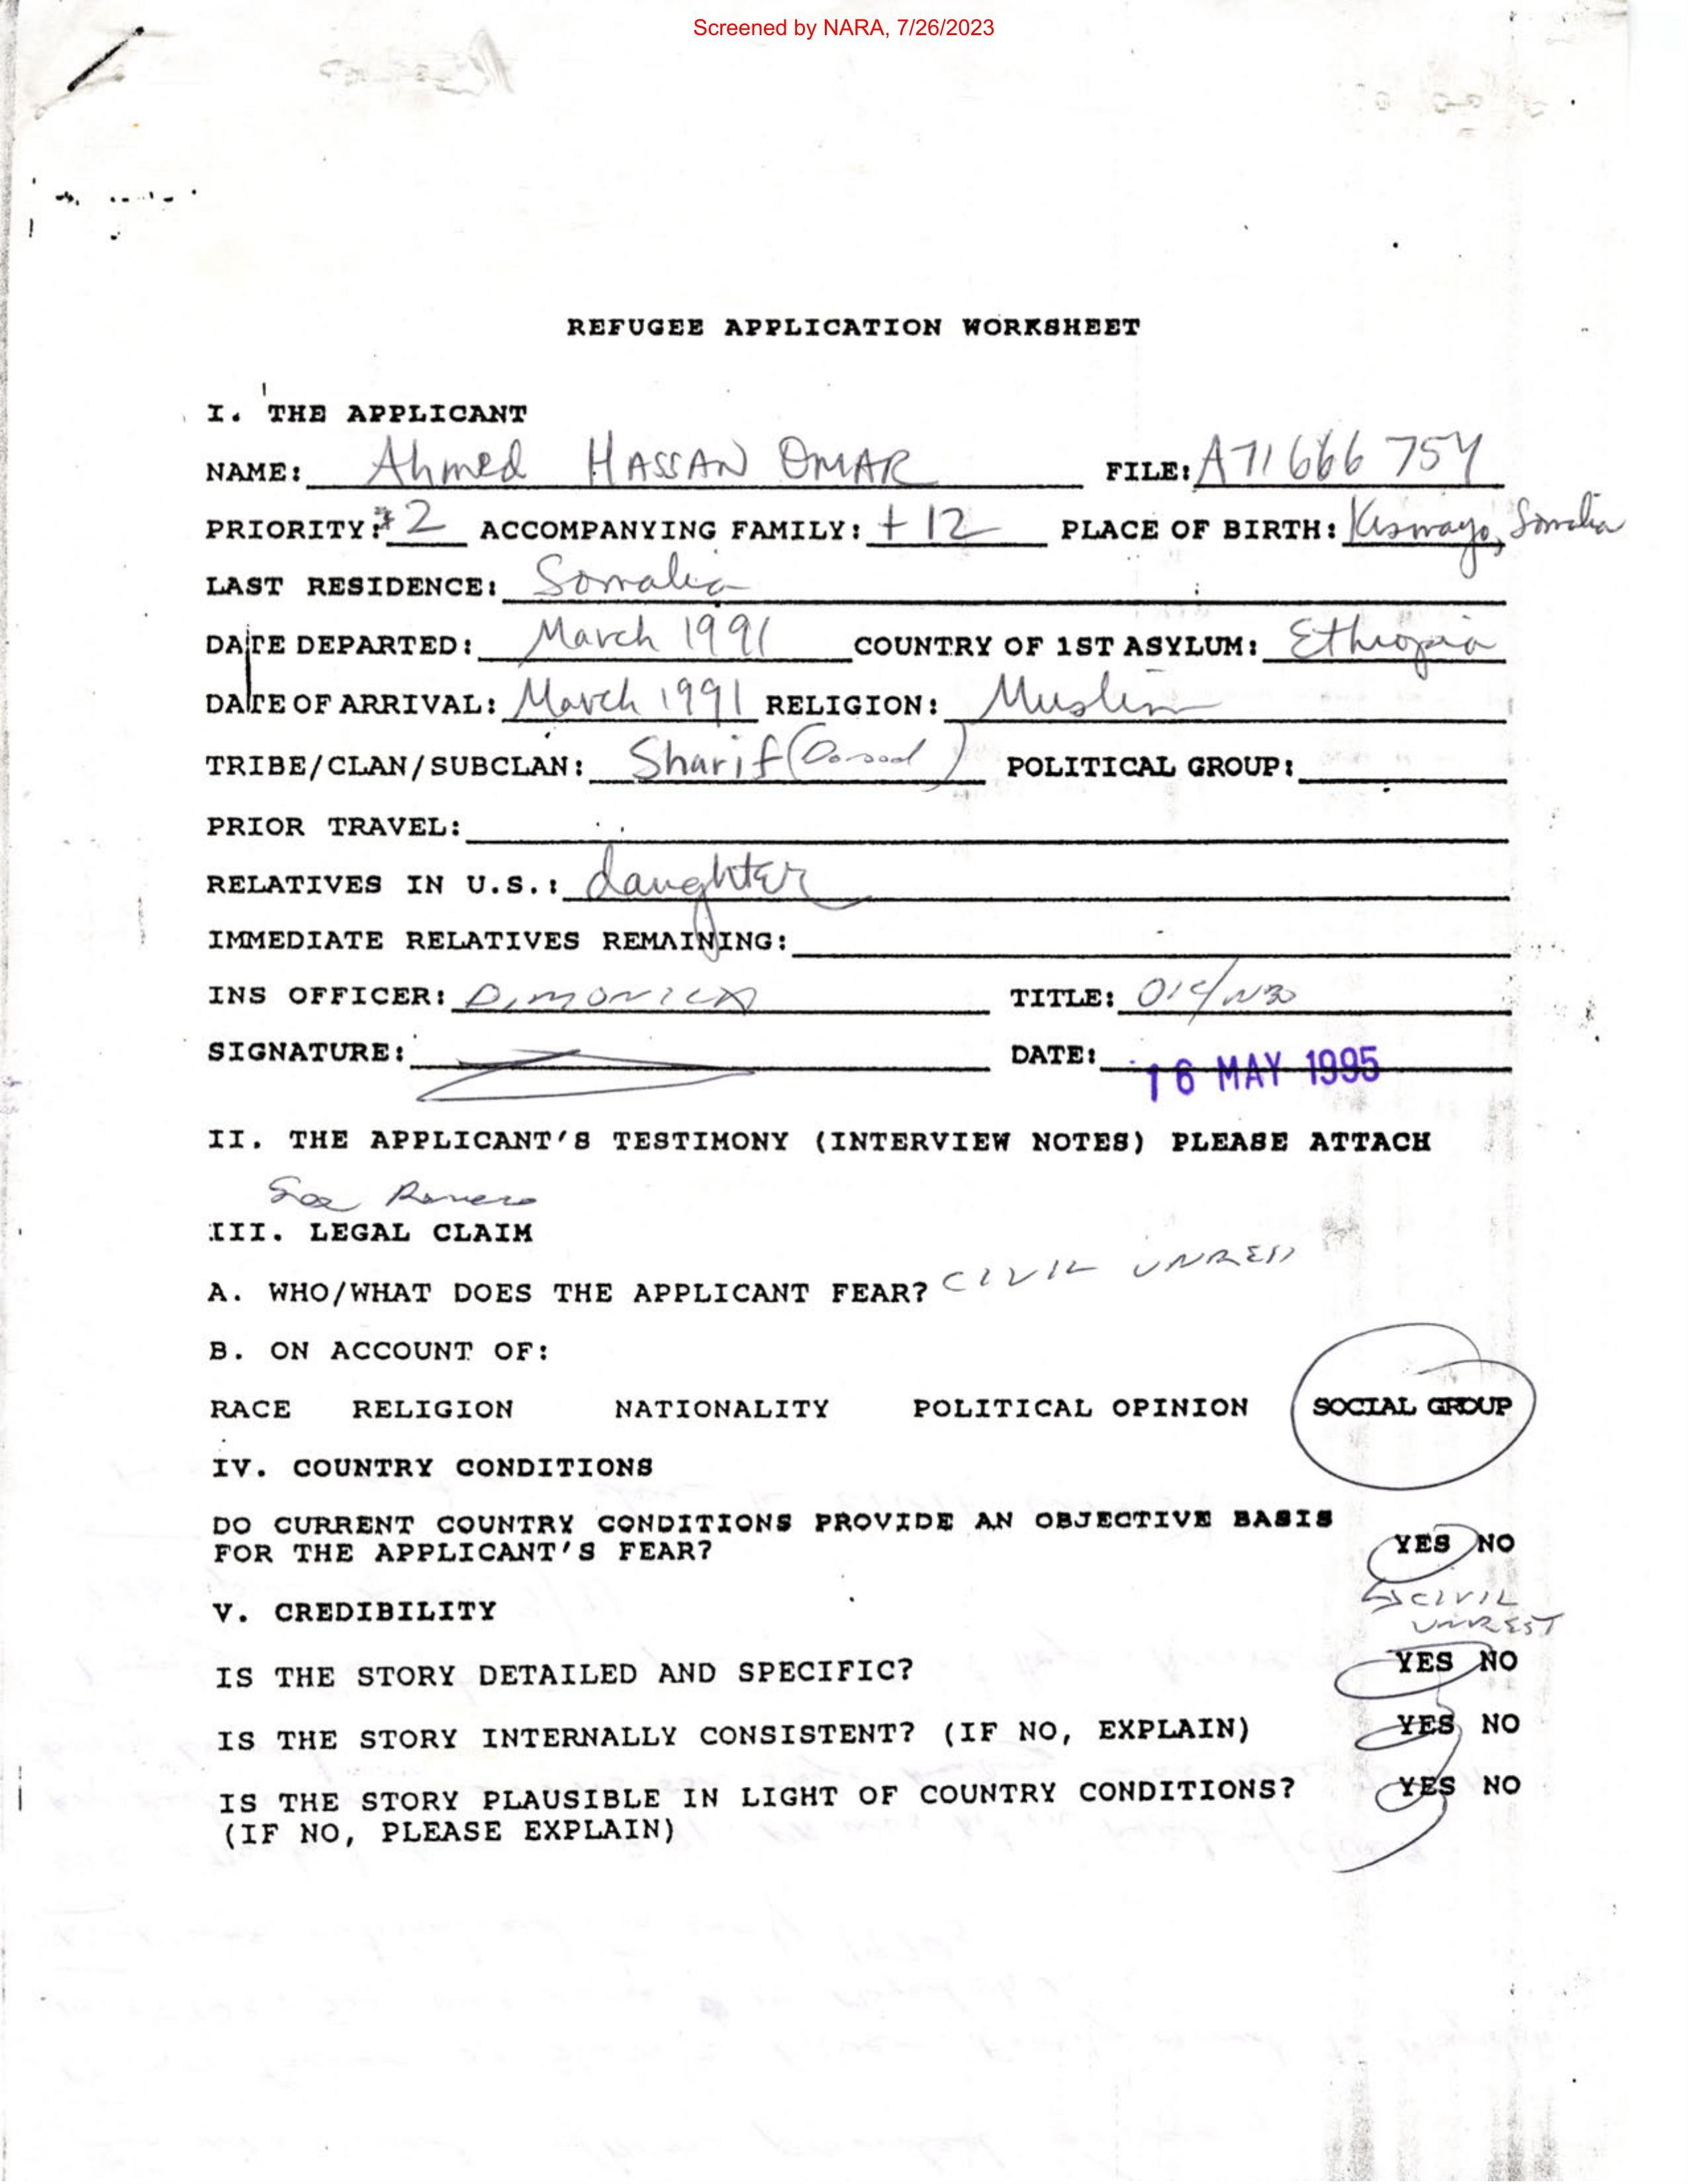 Screened by NARA, 7/26/2023
REFUGEE APPLICATION WORKSHEET
I. THE APPLICANT
NAME: Ahmed HASSAN OMAR FILE: A71 666 754
PRIORITY: #2 ACCOMPANYING FAMILY: +12 PLACE OF BIRTH: Kismayo, Somalia
LAST RESIDENCE: Somalia
DATE DEPARTED: March 1991 COUNTRY OF 1ST ASYLUM: Ethiopia
DATE OF ARRIVAL: March 1991 RELIGION: Muslim
TRIBE/CLAN/SUBCLAN: Sharif ( ) POLITICAL GROUP:
PRIOR TRAVEL:
RELATIVES IN U.S.: daughter
IMMEDIATE RELATIVES REMAINING:
INS OFFICER: TITLE:
SIGNATURE: DATE: 16 MAY 1995
II. THE APPLICANT'S TESTIMONY (INTERVIEW NOTES) PLEASE ATTACH
See
III. LEGAL CLAIM
A. WHO/WHAT DOES THE APPLICANT FEAR? CIVIL UNREST
B. ON ACCOUNT OF:
RACE RELIGION NATIONALITY POLITICAL OPINION SOCIAL GROUP
IV. COUNTRY CONDITIONS
DO CURRENT COUNTRY CONDITIONS PROVIDE AN OBJECTIVE BASIS
FOR THE APPLICANT'S FEAR? YES NO
CIVIL
UNREST
V. CREDIBILITY
IS THE STORY DETAILED AND SPECIFIC? YES NO
IS THE STORY INTERNALLY CONSISTENT? (IF NO, EXPLAIN) YES NO
IS THE STORY PLAUSIBLE IN LIGHT OF COUNTRY CONDITIONS? YES NO
(IF NO, PLEASE EXPLAIN)